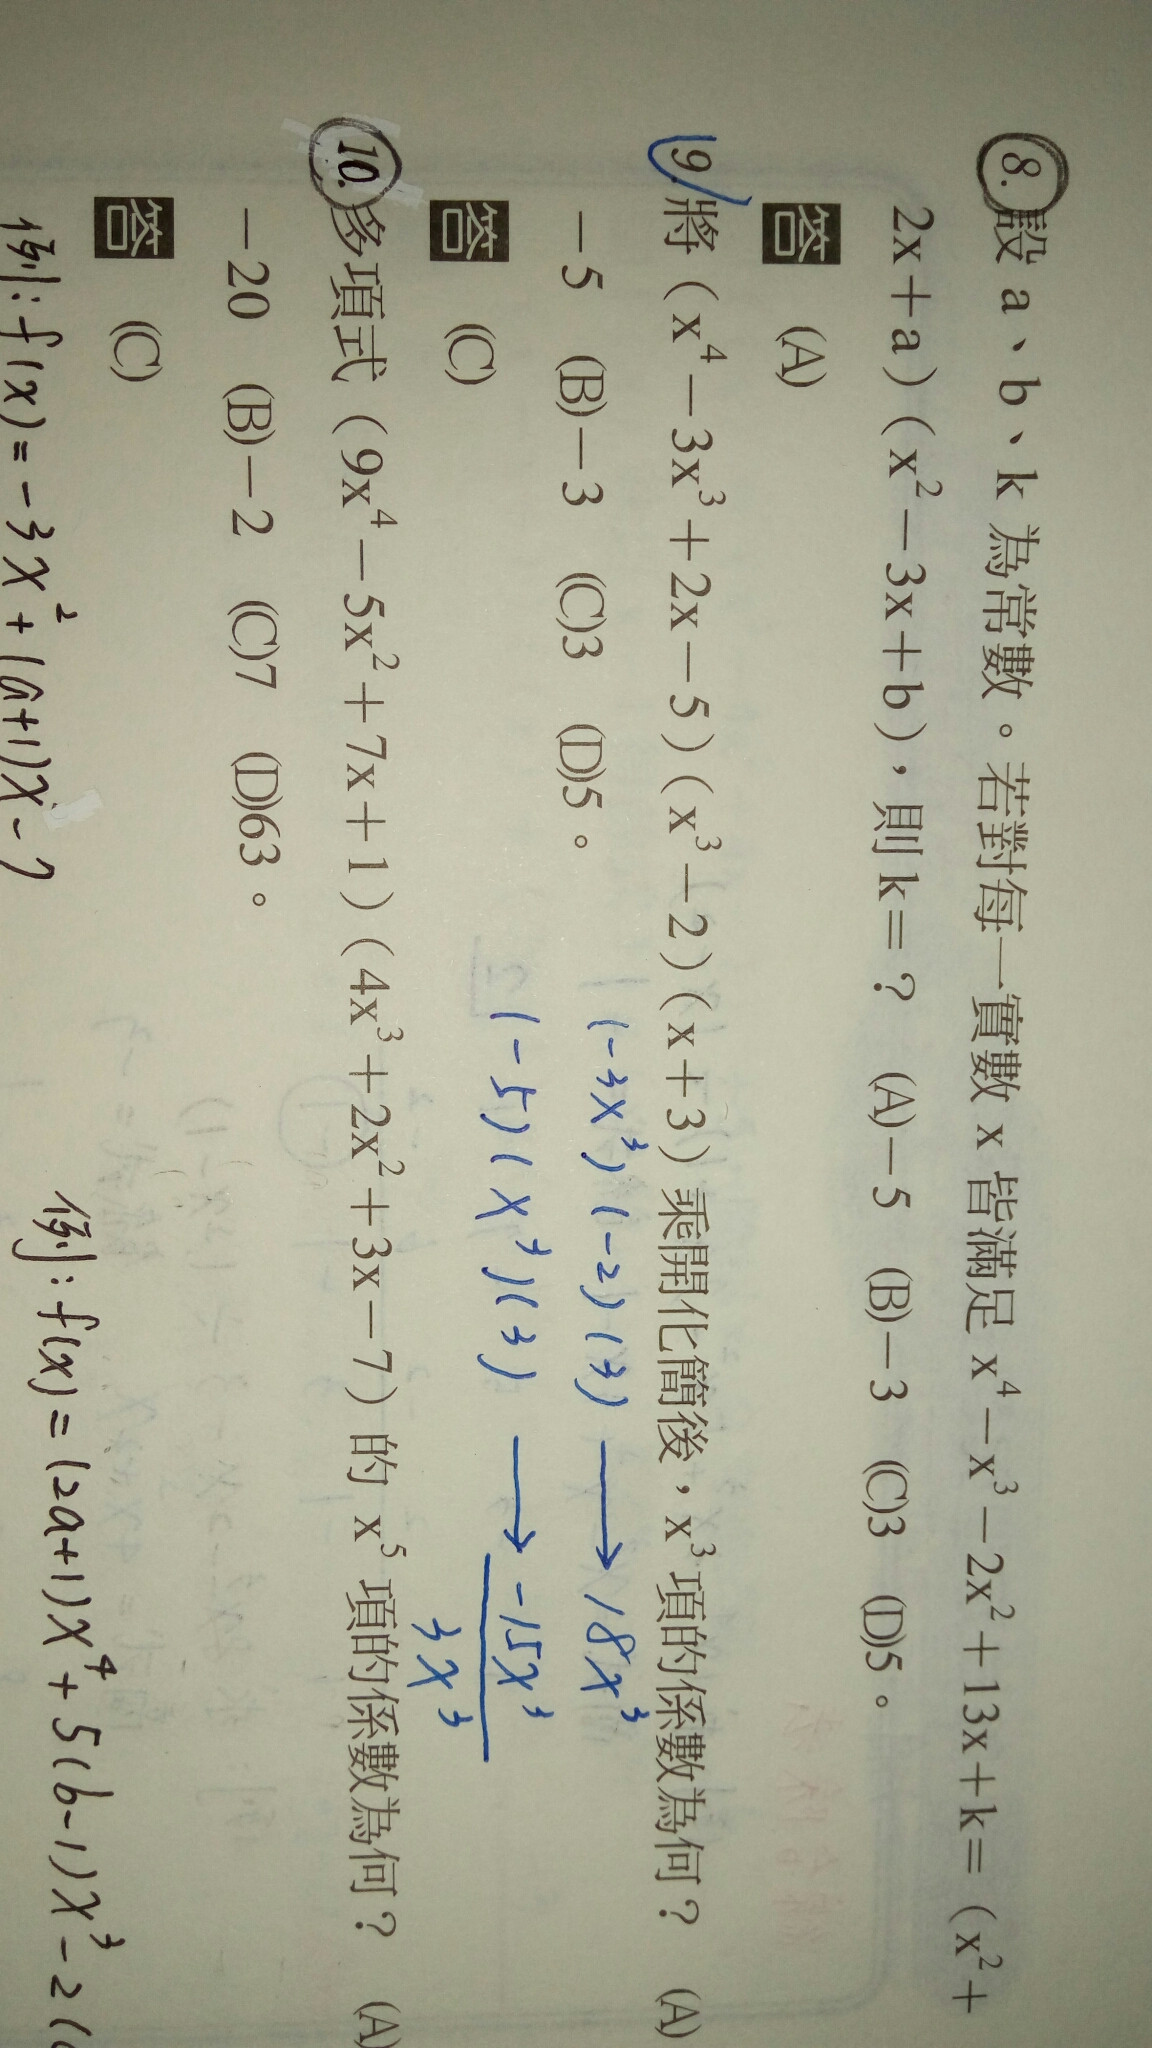 8.設 a、b、k 為常數。若對每一實數 x 皆滿足 x⁴－x³－2x²＋13x＋k＝（x²＋
2x＋a）（x²－3x＋b），則 k＝？ (A)－5 (B)－3 (C)3 (D)5。
答 (A)
9 將（x⁴－3x³＋2x－5）（x³－2）（x＋3）乘開化簡後，x³ 項的係數為何？ (A)
－5 (B)－3 (C)3 (D)5。
(-3x³)(-2)(3) → 18x³
答 (C)
(-5)(x³)(3) → -15x³
3x³
10.多項式（9x⁴－5x²＋7x＋1）（4x³＋2x²＋3x－7）的 x⁵ 項的係數為何？ (A)
－20 (B)－2 (C)7 (D)63。
答 (C)
例:f(x)=-3x²+(a+1)x-7
例:f(x)=(2a+1)x⁴+5(b-1)x³-2(